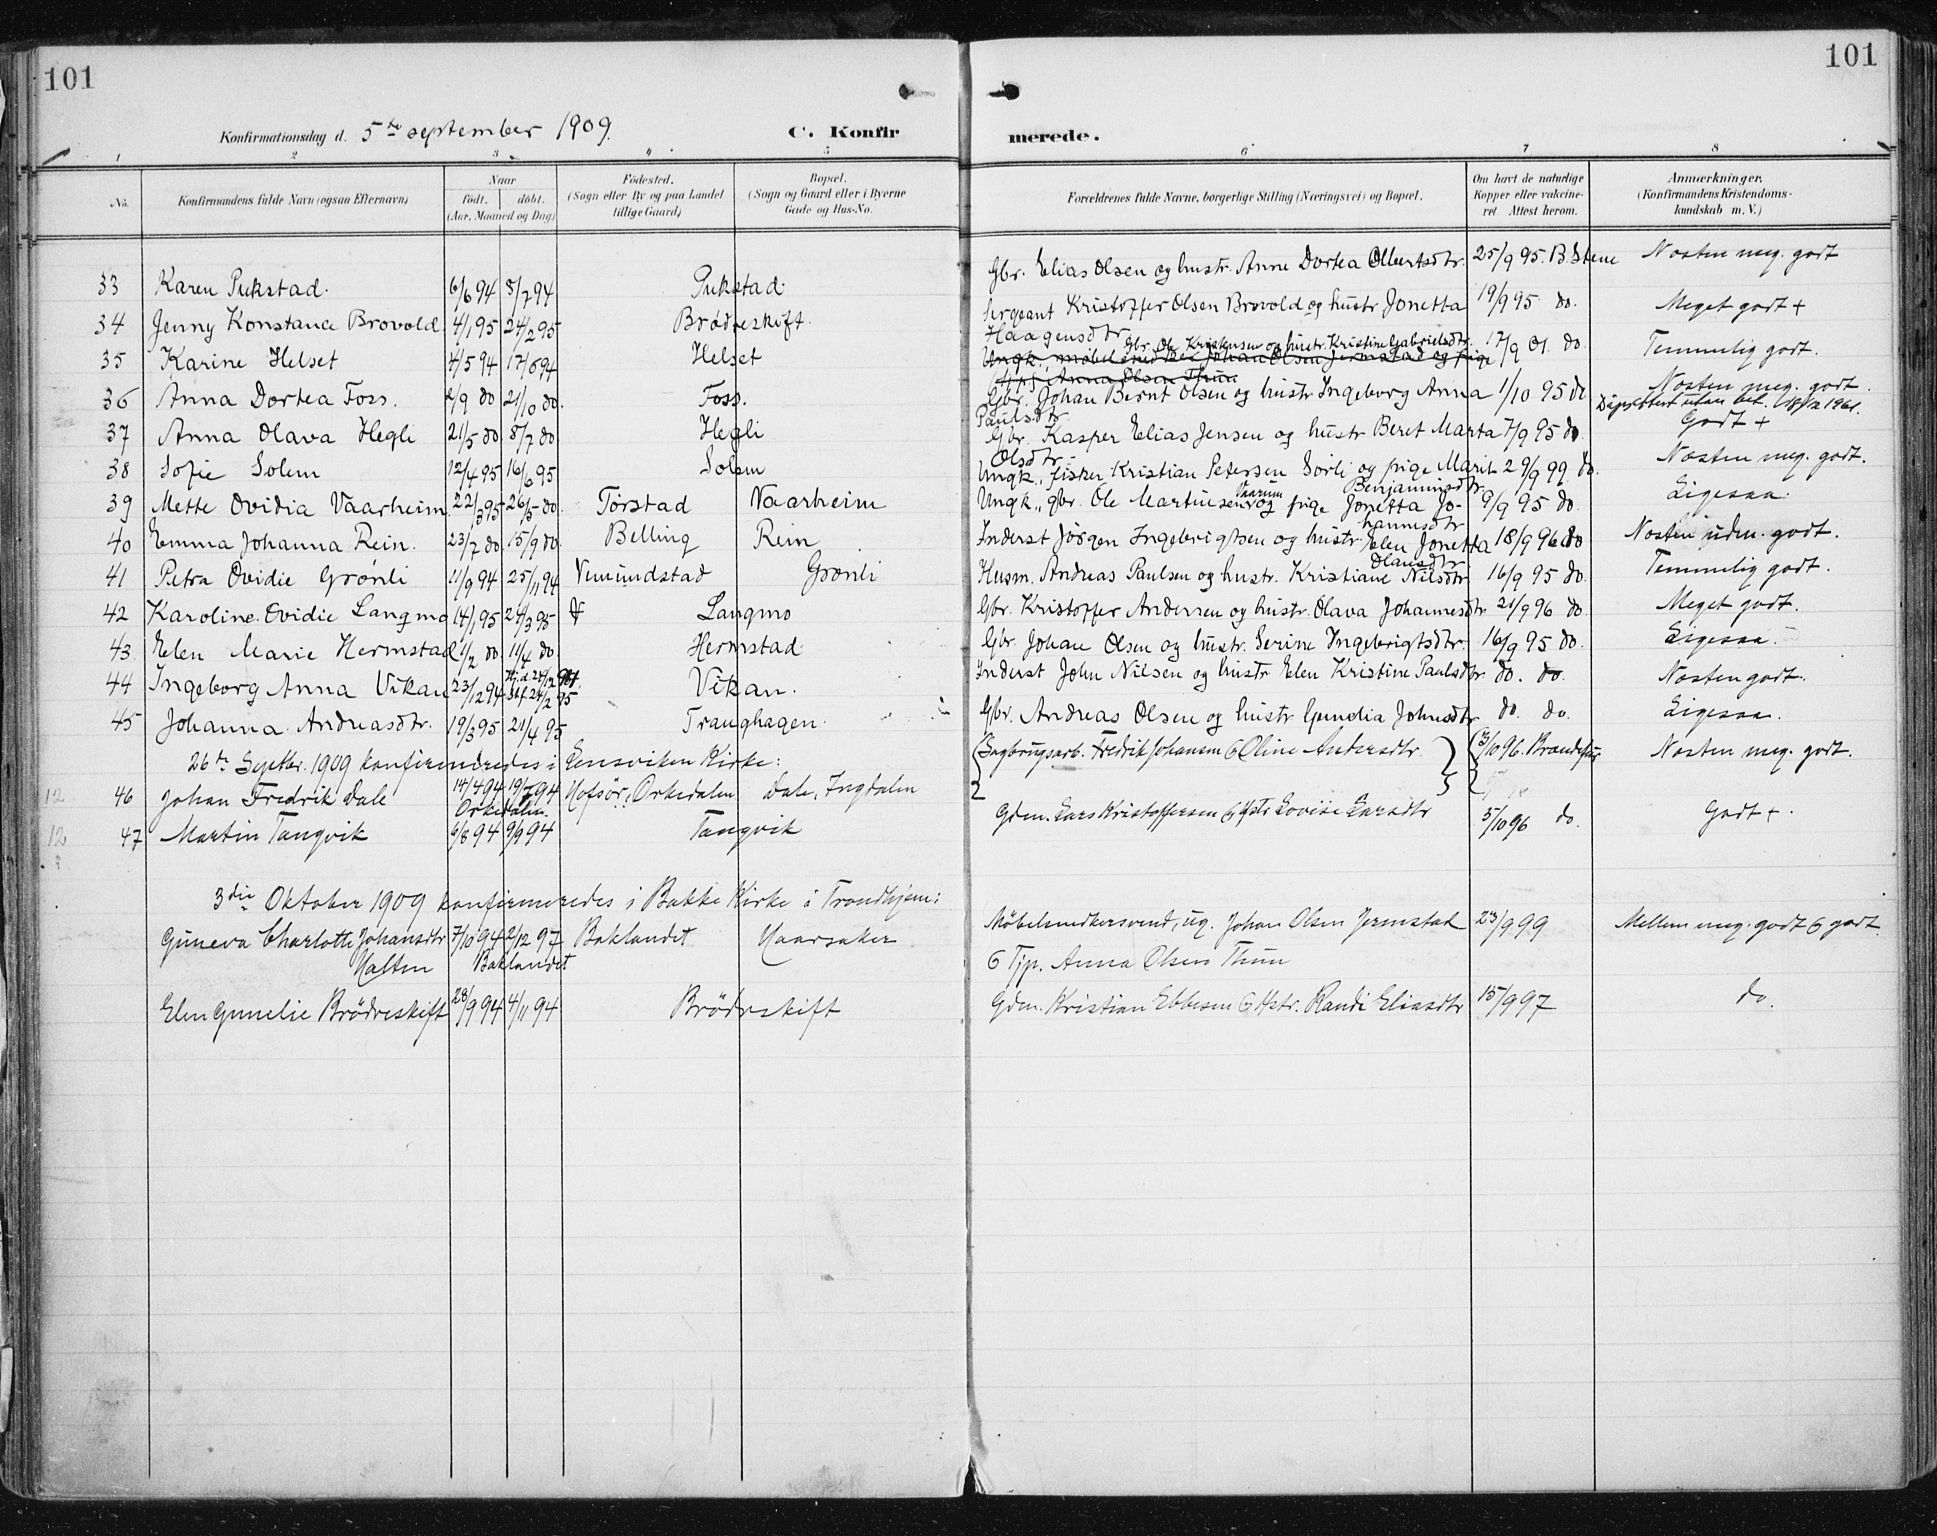 101
101
Konfirmationsdag d. 5te september 1909.
C. Konfir
merede.
1 2 3 4 5 6 7 8
No. Konfirmandens fulde Navn (ogsaa Efternavn)
Naar
födt. döbt.
(Aar, Maaned og Dag)
Födested.
(Sogn eller By og paa Landet
tillige Gaard)
Bopæl.
(Sogn og Gaard eller i Byerne
Gade og Hus-No.
Forældrenes fulde Navne, borgerlige Stilling (Næringsvei) og Bopæl.
Om havt de naturlige
Kopper eller vakcine-
ret Attest herom.
Anmærkninger.
(Konfirmandens Kristendoms-
kundskab m. V.)
33 Karen Pukstad. 6/6 94 8/7 94 Pukstad. Gbr. Elias Olsen og hustr. Anne Dortea Olbertsdtr. 25/9 95. B. Stene Næsten meg. godt
34 Jenny Konstance Brovold. 4/1 95 24/2 95 Brødreskift. Sergeant Kristoffer Olsen Brovold og hustr Jonetta 19/9 95 do. Meget godt +
Haagensdtr
Gbr. Ole Kristensen og hustr. Kristine Gabrielsdtr.
35 Karine Helset 4/5 94 17/6 94 Helset Ungk., møbelsnedker Johan Olsen Jermstad og pige 17/9 01. do. Temmelig godt.
Anna Olsen Thun
36 Anna Dortea Foss. 2/9 do 21/10 do. Foss. Gbr. Johan Bernt Olsen og hustr Ingeborg Anna 1/10 95 do Næsten meg. godt.
Paulsdtr
Dåpsattest utan bet. 18/12 1961.
37 Anna Olava Hegli 21/5 do 8/7 do Hegli Gbr. Kasper Elias Jensen og hustr Beret Marta 7/9 95 do. Godt +
Olsdtr.
38 Sofie Solem 12/4 95 16/6 95 Solem Ungk., fisker Kristian Petersen Sörli og pige Marit 29/9 99. do. Næsten meg. godt.
Benjaminsdtr
39 Mette Ovidia Vaarheim 22/3 95 26/5 do Törstad Vaarheim Ungk., gbr. Ole Martinsen Vaarum og pige Jonetta Jo- 9/9 95 do. Ligesaa.
hannesdtr
40 Emma Johanna Rein. 23/7 do 15/9 do. Belling Rein Inderst Jörgen Ingebrigtsen og hustr. Elen Jonetta 18/9 96 do Næsten uden. godt.
Olausdtr
41 Petra Ovidie Grönli 11/9 94 25/11 94 Vemundstad Grønli Husm. Andreas Paulsen og hustr. Kristiane Nilsdtr 16/9 95 do. Temmelig godt.
42 Karoline Ovidie Langmo 14/1 95 24/3 95 Langmo Gbr. Kristoffer Andersen og hustr. Olava Johannesdtr 21/9 96 do. Meget godt.
43 Elen Marie Hermstad 21/2 do. 11/4 do. Hermstad Gbr. Johan Olsen og hustr. Serine Ingebrigtsdtr. 16/9 95 do. Ligesaa.
44 Ingeborg Anna Vikan 23/12 94 Hj. d. 24/12 94. Stf. 24/2 95 Vikan. Inderst John Nilsen og hustr Elen Kristine Paulsdtr do. do. Næsten godt.
45 Johanna Andreasdtr. 19/3 95 21/4 95 Tranghagen. Gbr. Andreas Olsen og hustr Gundia Johnsdtr do. do. Ligesaa.
26te Septbr. 1909 konfirmeredes i Lensviken Kirke:
46 Johan Fredrik Dale 14/4 94 19/7 94 Hofsör, Orkedalen Dale, Ingdalen Sagbrugsarb. Fredrik Johansen & Oline Andersdtr 13/10 96. Næsten meg. godt.
Orkedalen.
47 Martin Tangvik 6/8 94 9/9 94 Tangvik Gdm. Lars Kristoffersen & Hstr Lovise Larsdtr 5/10 96 do. Godt +.
3die Oktober 1909 konfirmeredes i Bakke Kirke i Trondhjem:
Guneva Charlotte Johansdtr 7/10 94 2/12 97 Baklandet Haarsaker Möbelsnedkersvend, ug. Johan Olsen Jermstad 23/9 99 Mellem meg. godt & godt.
Halten Baklandet & Tjp. Anna Olsen Thun
Elen Gunelie Brödreskift 28/9 94 4/11 94 Brödreskift Gdm. Kristian Ebbesen & Hstr. Randi Eliasdtr 15/9 97 do.